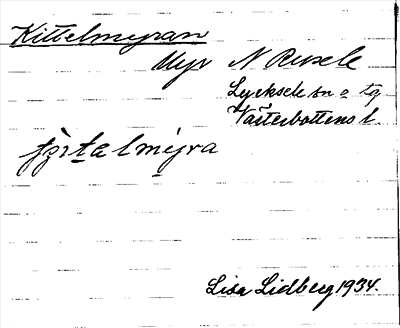 Kittelmyran
Myr N Rusele
Lycksele sn o tg
Västerbottens l.
Lisa Lidberg 1934.